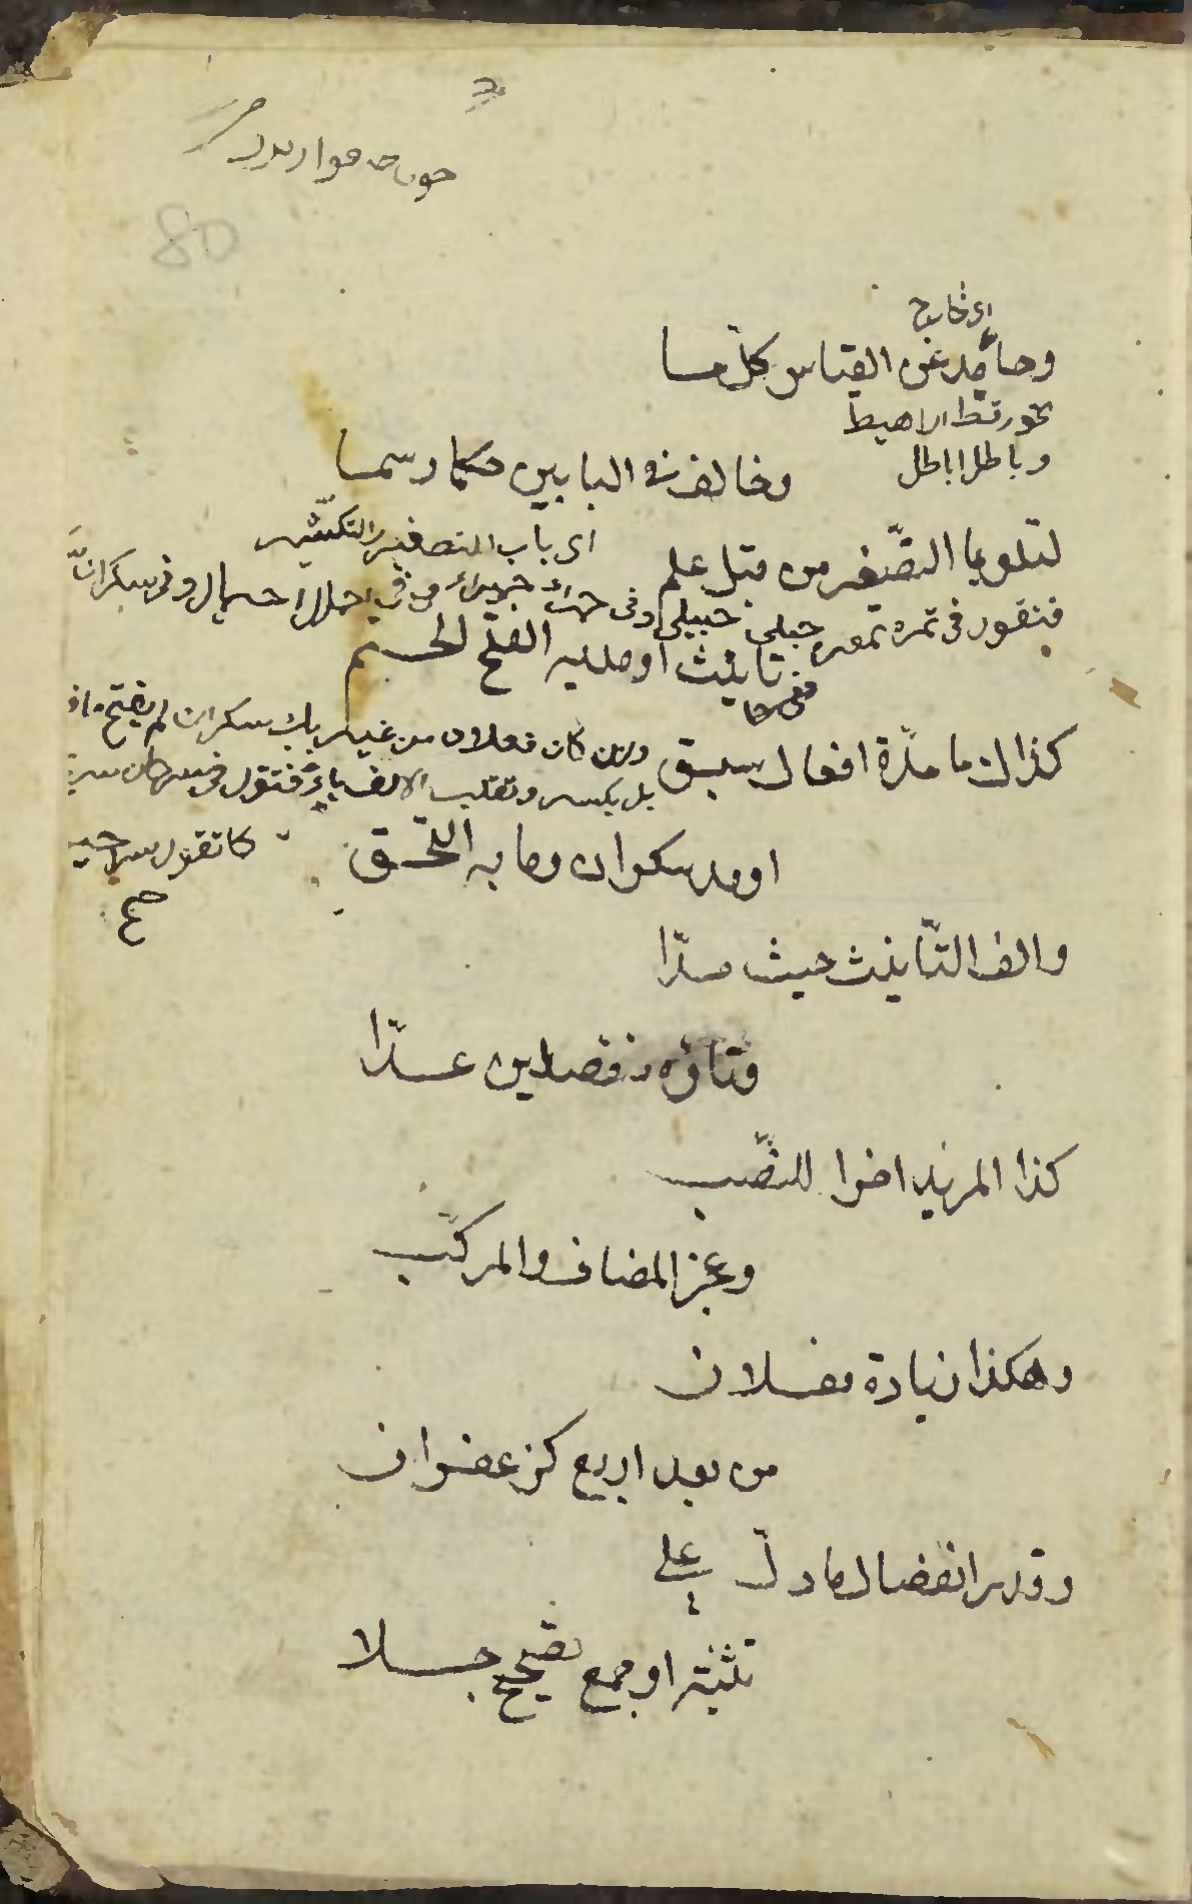 80
اى خارج
وحائد عن القياس كل ما
نحو رهط اراهيط
وباطل اباطل
وخالف في البابين حكما رسما
اى باب التصغير والتكسير
لتلو يا التصغير من قبل علم
فتقول فى تمرة تميرة حبلى حبيلى وفى حمراء حميراء وفي اجمال اجيمال وفى سكران
تانيث او مدته الفتح انحتم
كذاك ما مدة افعال سبق
وان كان فعلان من غير باب سكران لم يفتح ما
بل يكسر وتقلب الالف ياء فتقول فى سرحان
او مد سكران وما به التحق
كما تقول
صح
والف التّانيث حيث مدّا
وتاؤه منفصلين عدّا
كذا المزيد اخرا للنسب
وعجز المضاف والمركّب
وهكذا زيادة فعلان
من بعد اربع كزعفران
وقدر انفصال ما دلّ على
تثنية او جمع تصحيح جلا